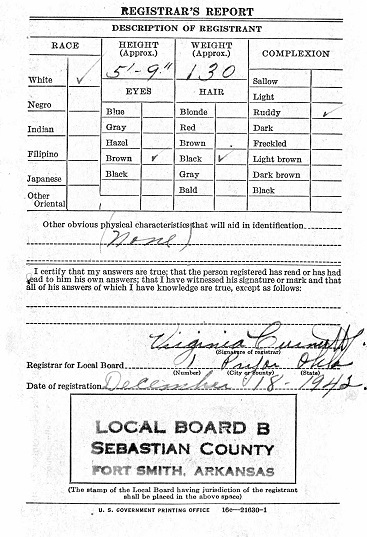 REGISTRAR'S REPORT
DESCRIPTION OF REGISTRANT
RACE HEIGHT (Approx.) WEIGHT (Approx.) COMPLEXION
5'-9" 130
EYES HAIR
White ✓ Sallow
Light
Negro Blue Blonde Ruddy ✓
Indian Gray Red Dark
Hazel Brown Freckled
Filipino Brown ✓ Black ✓ Light brown
Japanese Black Gray Dark brown
Other Oriental Bald Black
Other obvious physical characteristics that will aid in identification
(None)
I certify that my answers are true; that the person registered has read or has had
read to him his own answers; that I have witnessed his signature or mark and that
all of his answers of which I have knowledge are true, except as follows:
Virginia
(Signature of registrar)
Registrar for Local Board 1 Pryor Okla
(Number) (City or county) (State)
Date of registration December 18-1942.
LOCAL BOARD B
SEBASTIAN COUNTY
FORT SMITH, ARKANSAS
(The stamp of the Local Board having jurisdiction of the registrant
shall be placed in the above space)
U. S. GOVERNMENT PRINTING OFFICE 16c—21630-1